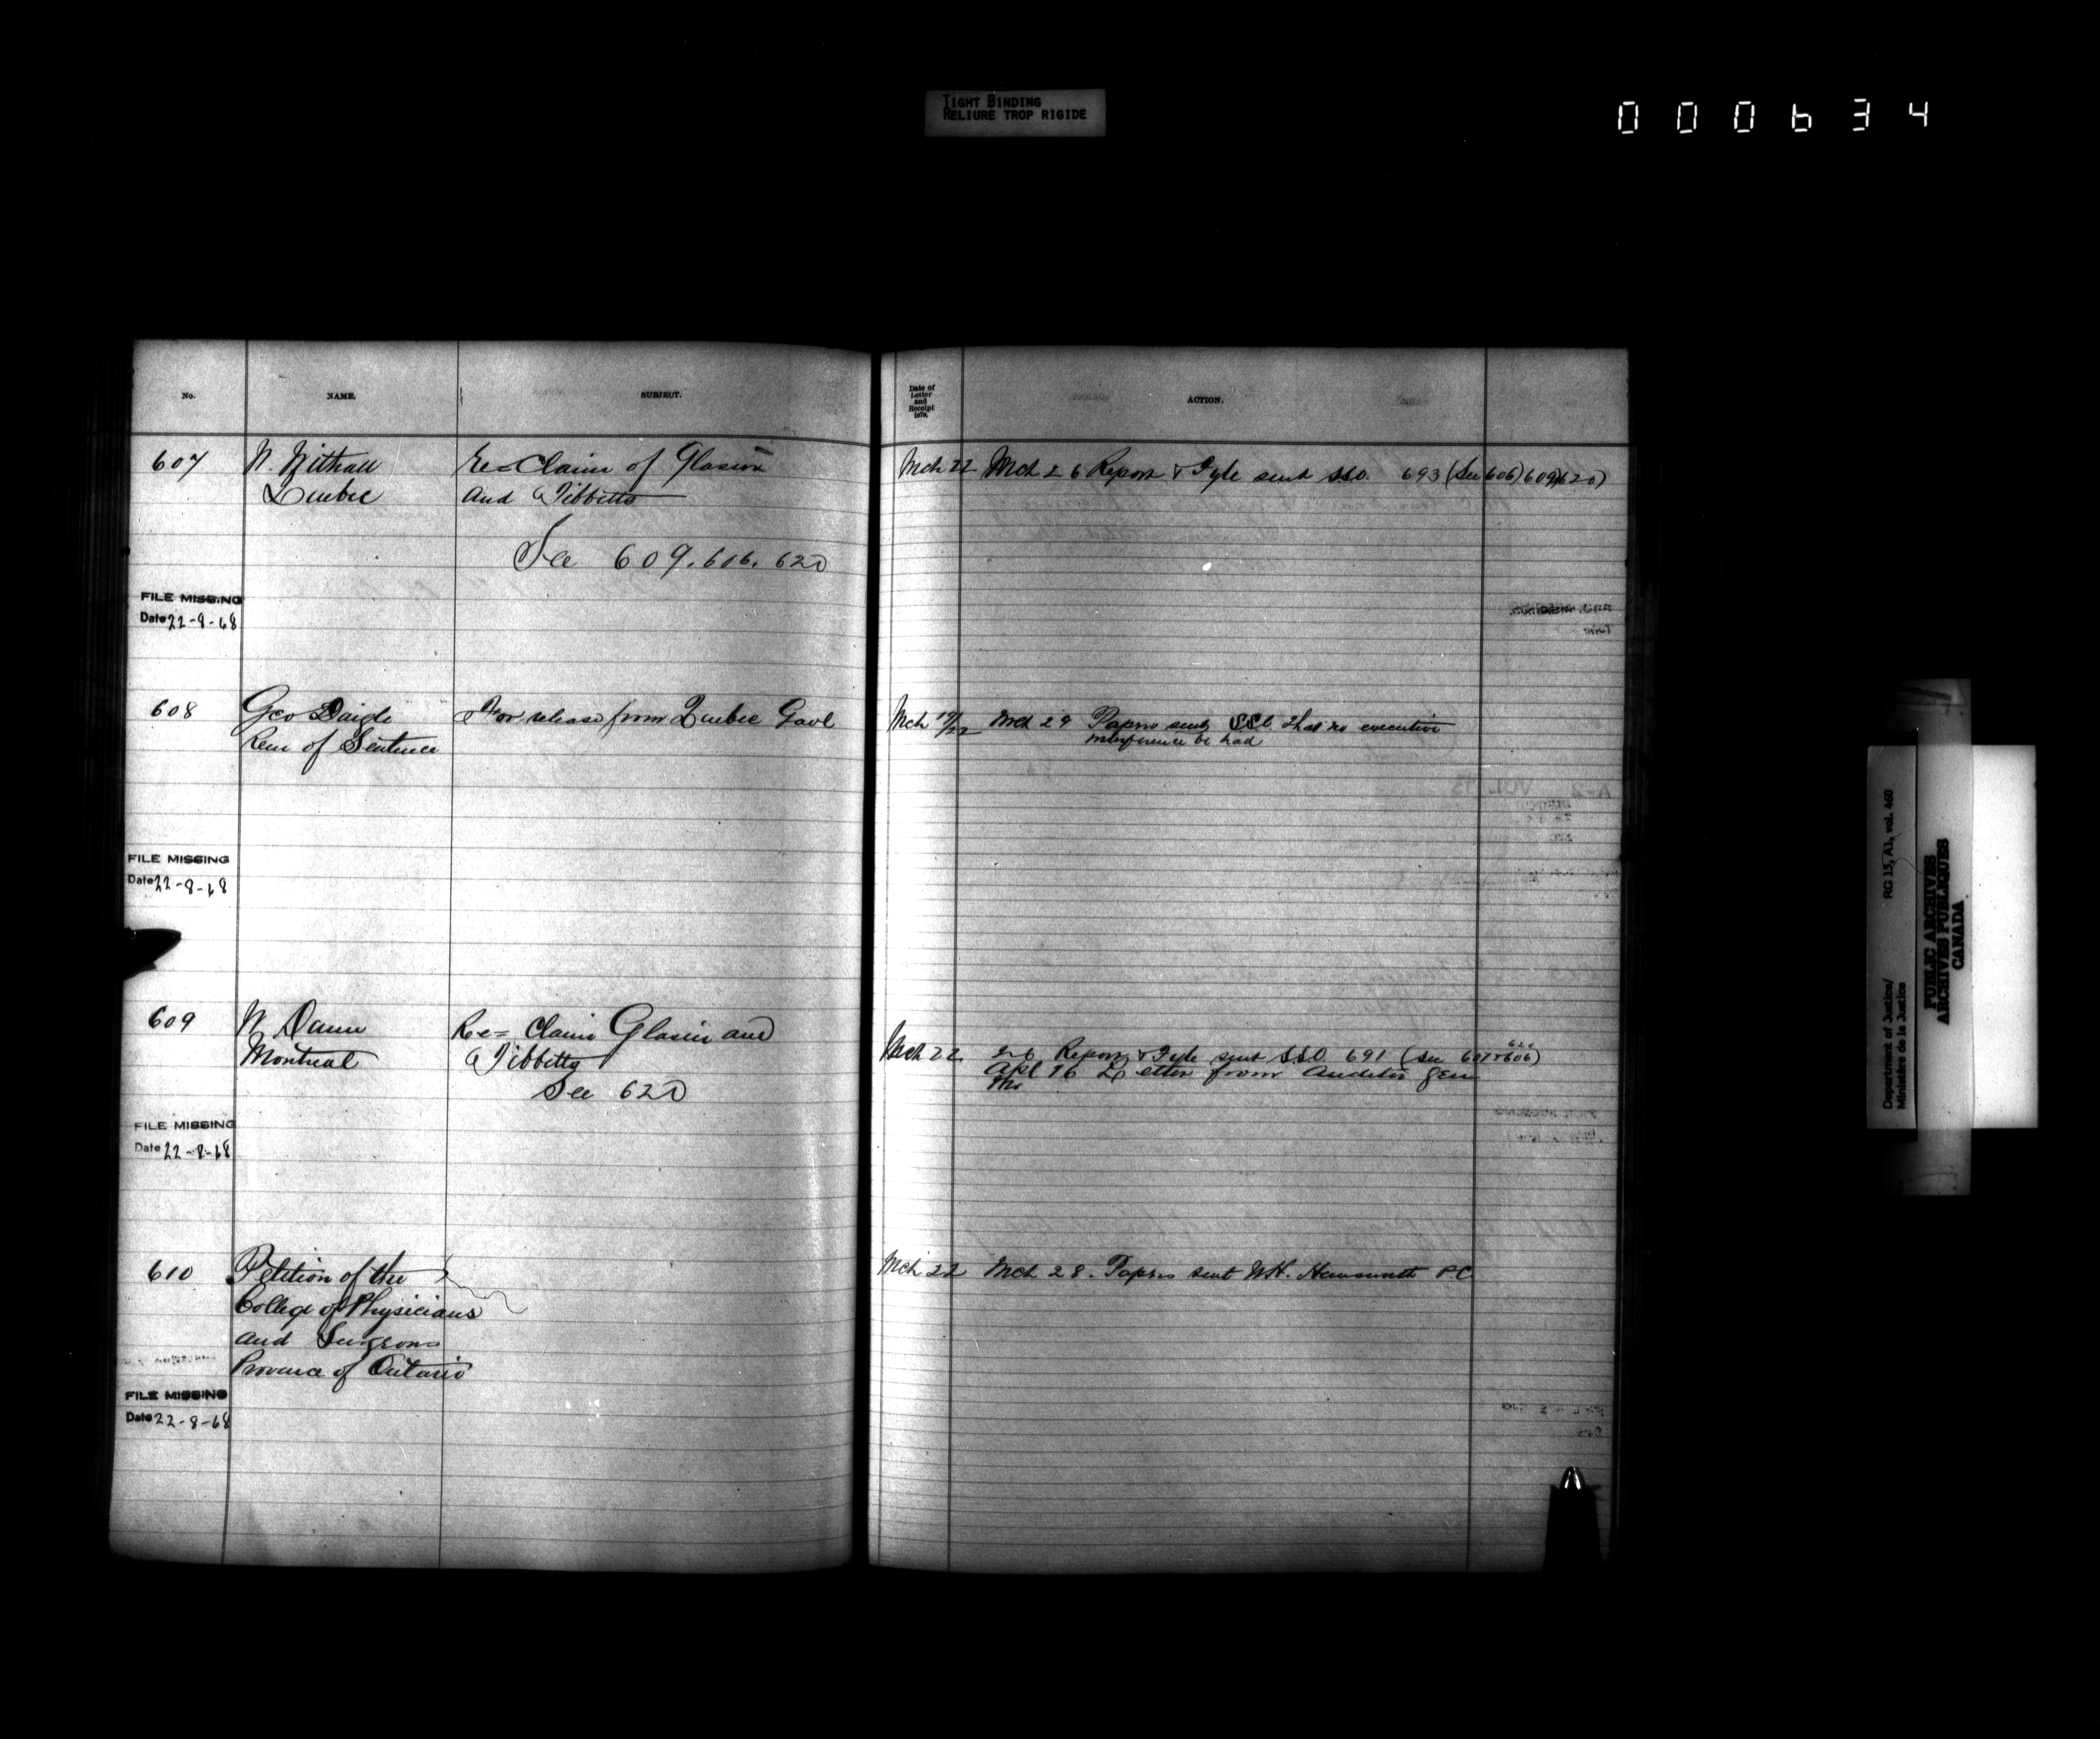 TIGHT BINDING
RELIURE TROP RIGIDE
000634
No. NAME. SUBJECT.
Date of
Letter
and
Receipt
1879.
ACTION.
607 W. Withall Re= Claim of Glasier Mch 22 Mch 26 Report & Fyle sent SSO. 693 (See 606) 609) 620)
Quebec and Tibbitts
See 609. 606. 620
FILE MISSING
Date 22-8-68
608 Geo Daigle For release from Quebec Gaol Mch 19/22 Mch 29 Papers sent SSC that no executive
Rem of Sentence interference be had
FILE MISSING
Date 22-8-68
609 W Dann Re= Claim Glasier and
Montreal Tibbitts Mch 22 26 Report & Fyle sent SSO 691 (See 607 & 606) 620
See 620 Apl 16 Letter from Auditor Genl
FILE MISSING
Date 22-8-68
610 Petition of the Mch 22 Mch 28. Papers sent WH. PC
College of Physicians
and Surgeons
Province of Ontario
FILE MISSING
Date 22-8-68
Department of Justice/ RG 13, A1, vol. 460
Ministère de la Justice
PUBLIC ARCHIVES
ARCHIVES PUBLIQUES
CANADA